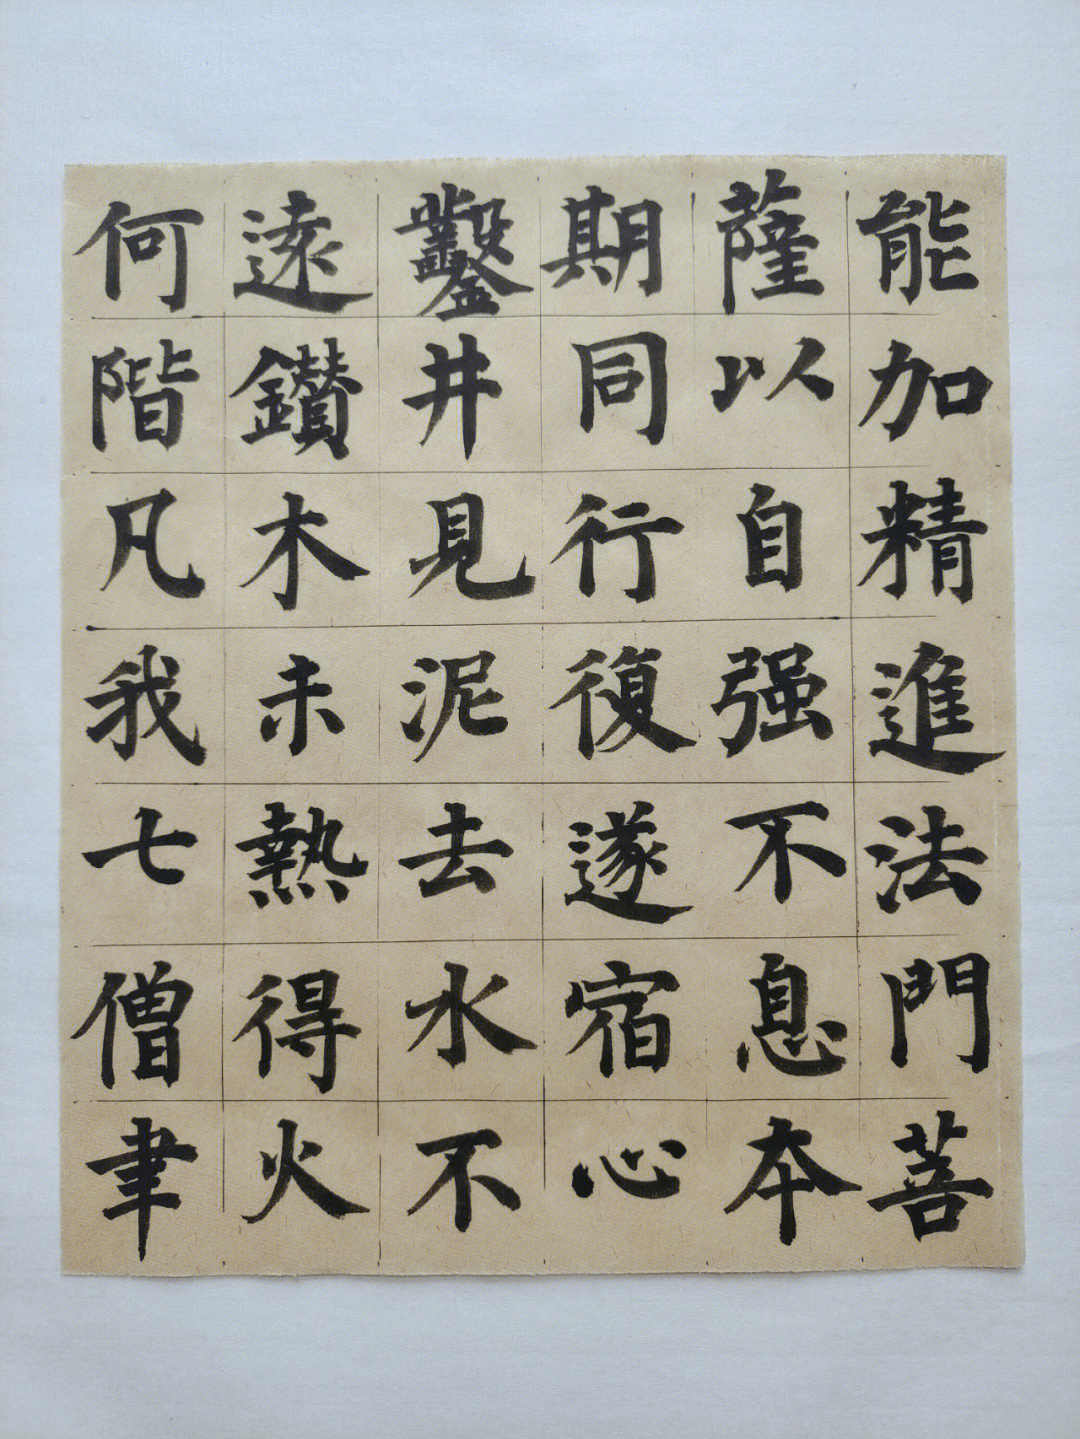 能加精進法門菩
薩以自强不息本
期同行復遂宿心
鑿井見泥去水不
遠鑽木未熱得火
何階凡我七僧聿